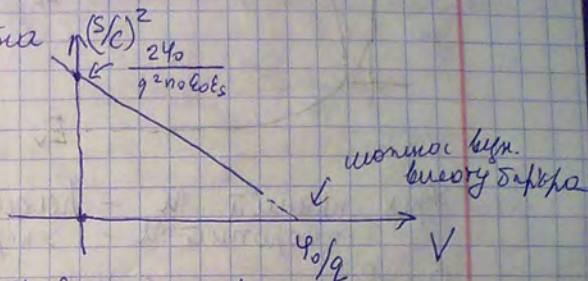 (S/C)²
2φ₀
q²n₀ε₀εₛ
можно выч.
высоту барьера
φ₀/q
V